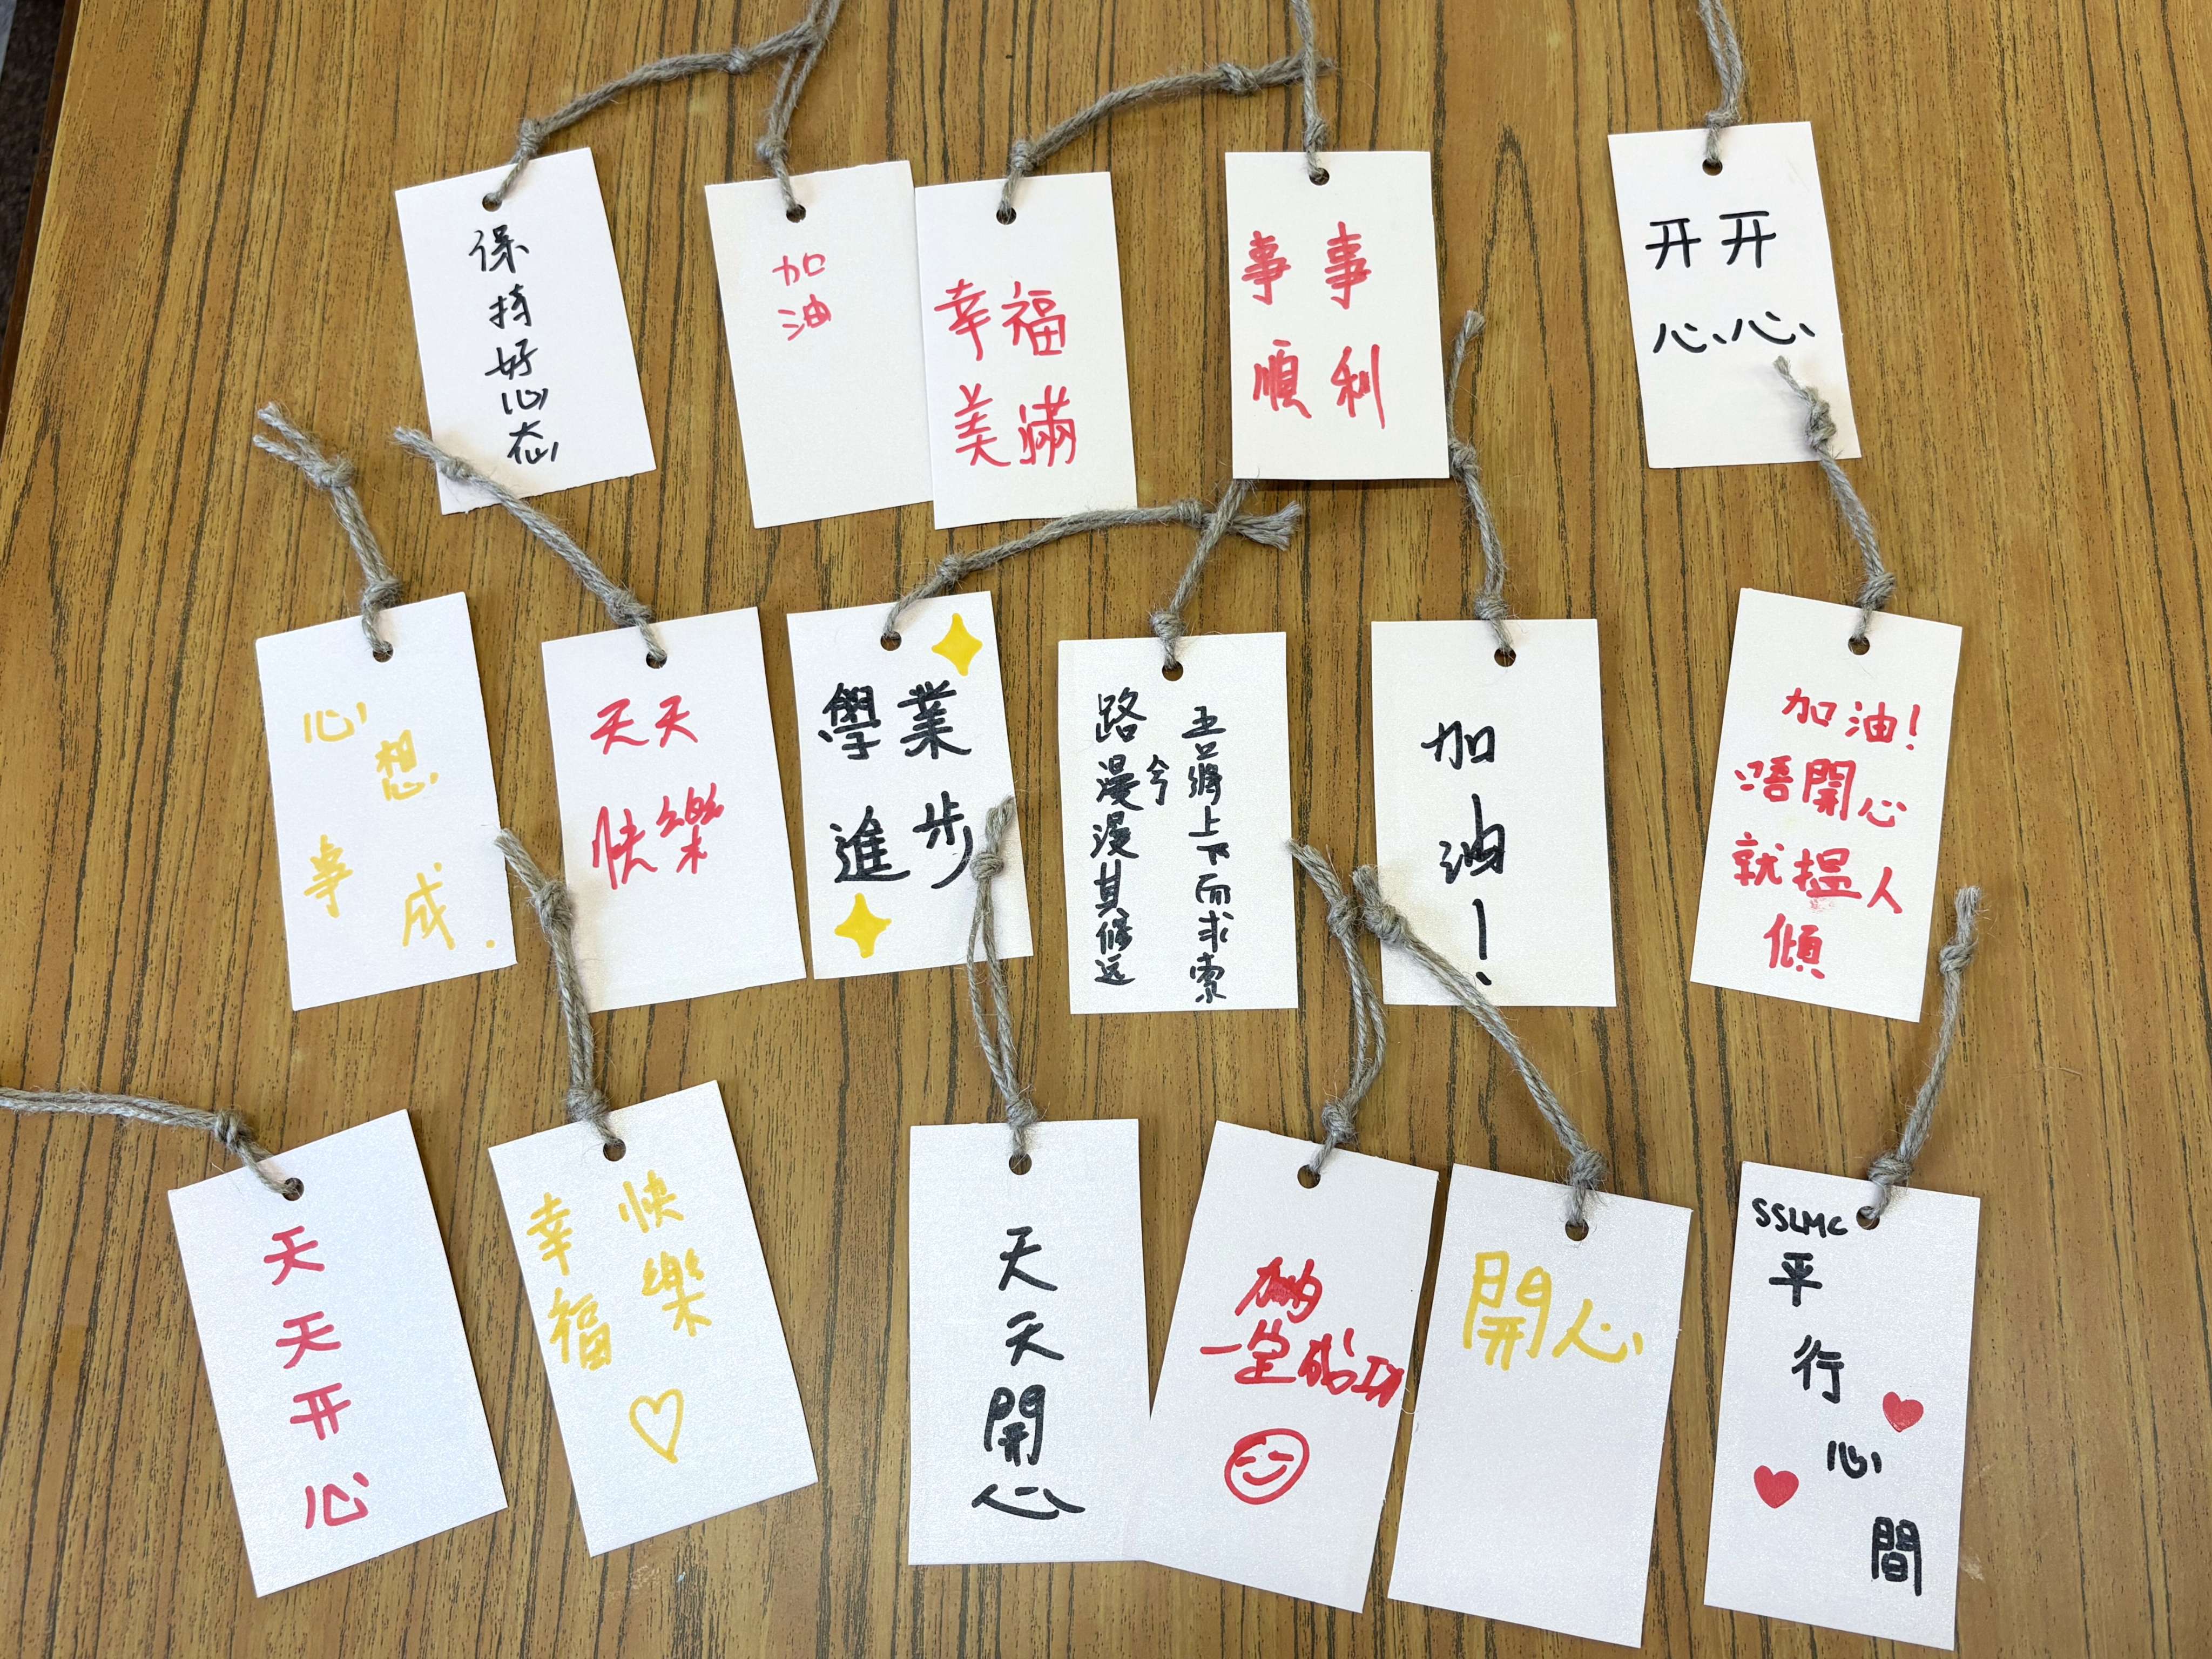 保持好心态
加油
幸福
美滿
事事
順利
开开
心心
心想
事成.
天天
快樂
學業
進步
路漫漫其修远兮
吾将上下而求索
加油！
加油！
唔開心
就搵人
傾
天天开心
快樂
幸福
天天開心
一定成功
開心
SSLMC
平行心間